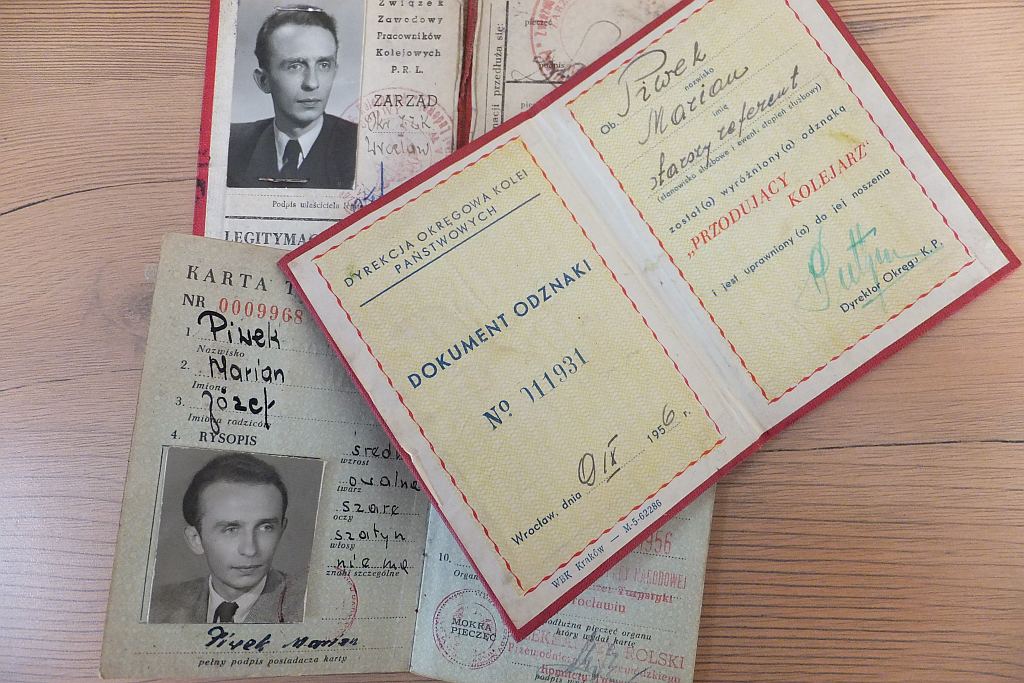 Związek
Zawodowy
Pracowników
Kolejowych
P.R.L.
ZARZĄD
Wrocław
Podpis właściciela
LEGITYMAC
pieczęć
podpis
acji przedłuża się:
KARTA T
NR 0009968
1. Piwek
Nazwisko
2. Marian
Imiona
3. Józef
Imiona rodziców
4. RYSOPIS
średn
wzrost
owalna
twarz
szare
oczy
szatyn
włosy
nie ma
znaki szczególne
Piwek Marian
pełny podpis posiadacza karty
10.
Organ
MOKRA
PIECZĘĆ
1956
NARODOWEJ
Turystyki
rocławiu
podłużna pieczęć organu
który wydał kartę
OLSKI
Przewodnicz
Komitetu
DYREKCJA OKRĘGOWA KOLEI
PAŃSTWOWYCH
DOKUMENT ODZNAKI
No 011931
Wrocław, dnia 9 IX 1956 r.
WBK Kraków — M-5-62286
Ob. Piwek
nazwisko
Marian
imię
starszy referent
(stanowisko służbowe i ewent. stopień służbowy)
został(a) wyróżniony(a) odznaką
„PRZODUJĄCY
KOLEJARZ"
i jest uprawniony(a) do jej noszenia
Dyrektor Okręgu K.P.